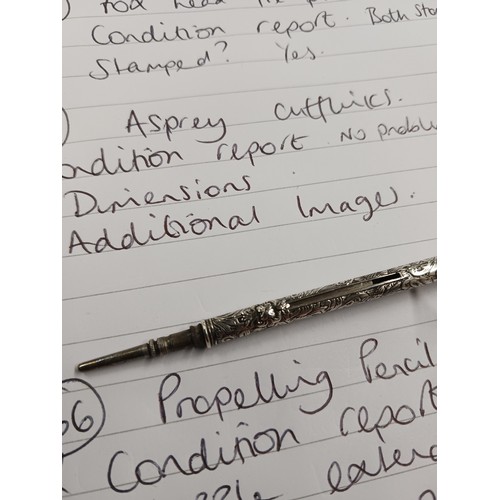 ) Fox Head
Condition report. Both
Stamped? Yes.
) Asprey Cufflinks.
ondition report No proble
Dimensions.
Additional Images.
66) Propelling Pencil
Condition report